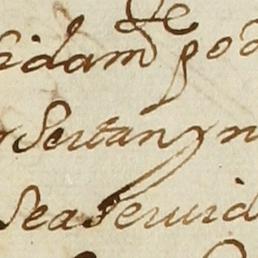 de
sidam pod
Sertan y n
Sea Seruid